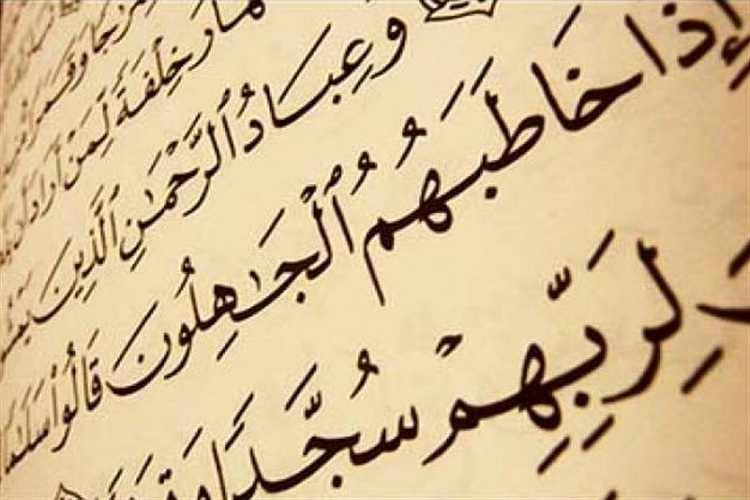 وَقَمَرًا
خِلْفَةً لِّمَنْ أَرَادَ
وَعِبَادُ ٱلرَّحْمَٰنِ ٱلَّذِينَ يَمْشُ
إِذَا خَاطَبَهُمُ ٱلْجَٰهِلُونَ قَالُوا۟ سَلَٰمًا
لِرَبِّهِمْ سُجَّدًا وَقِ